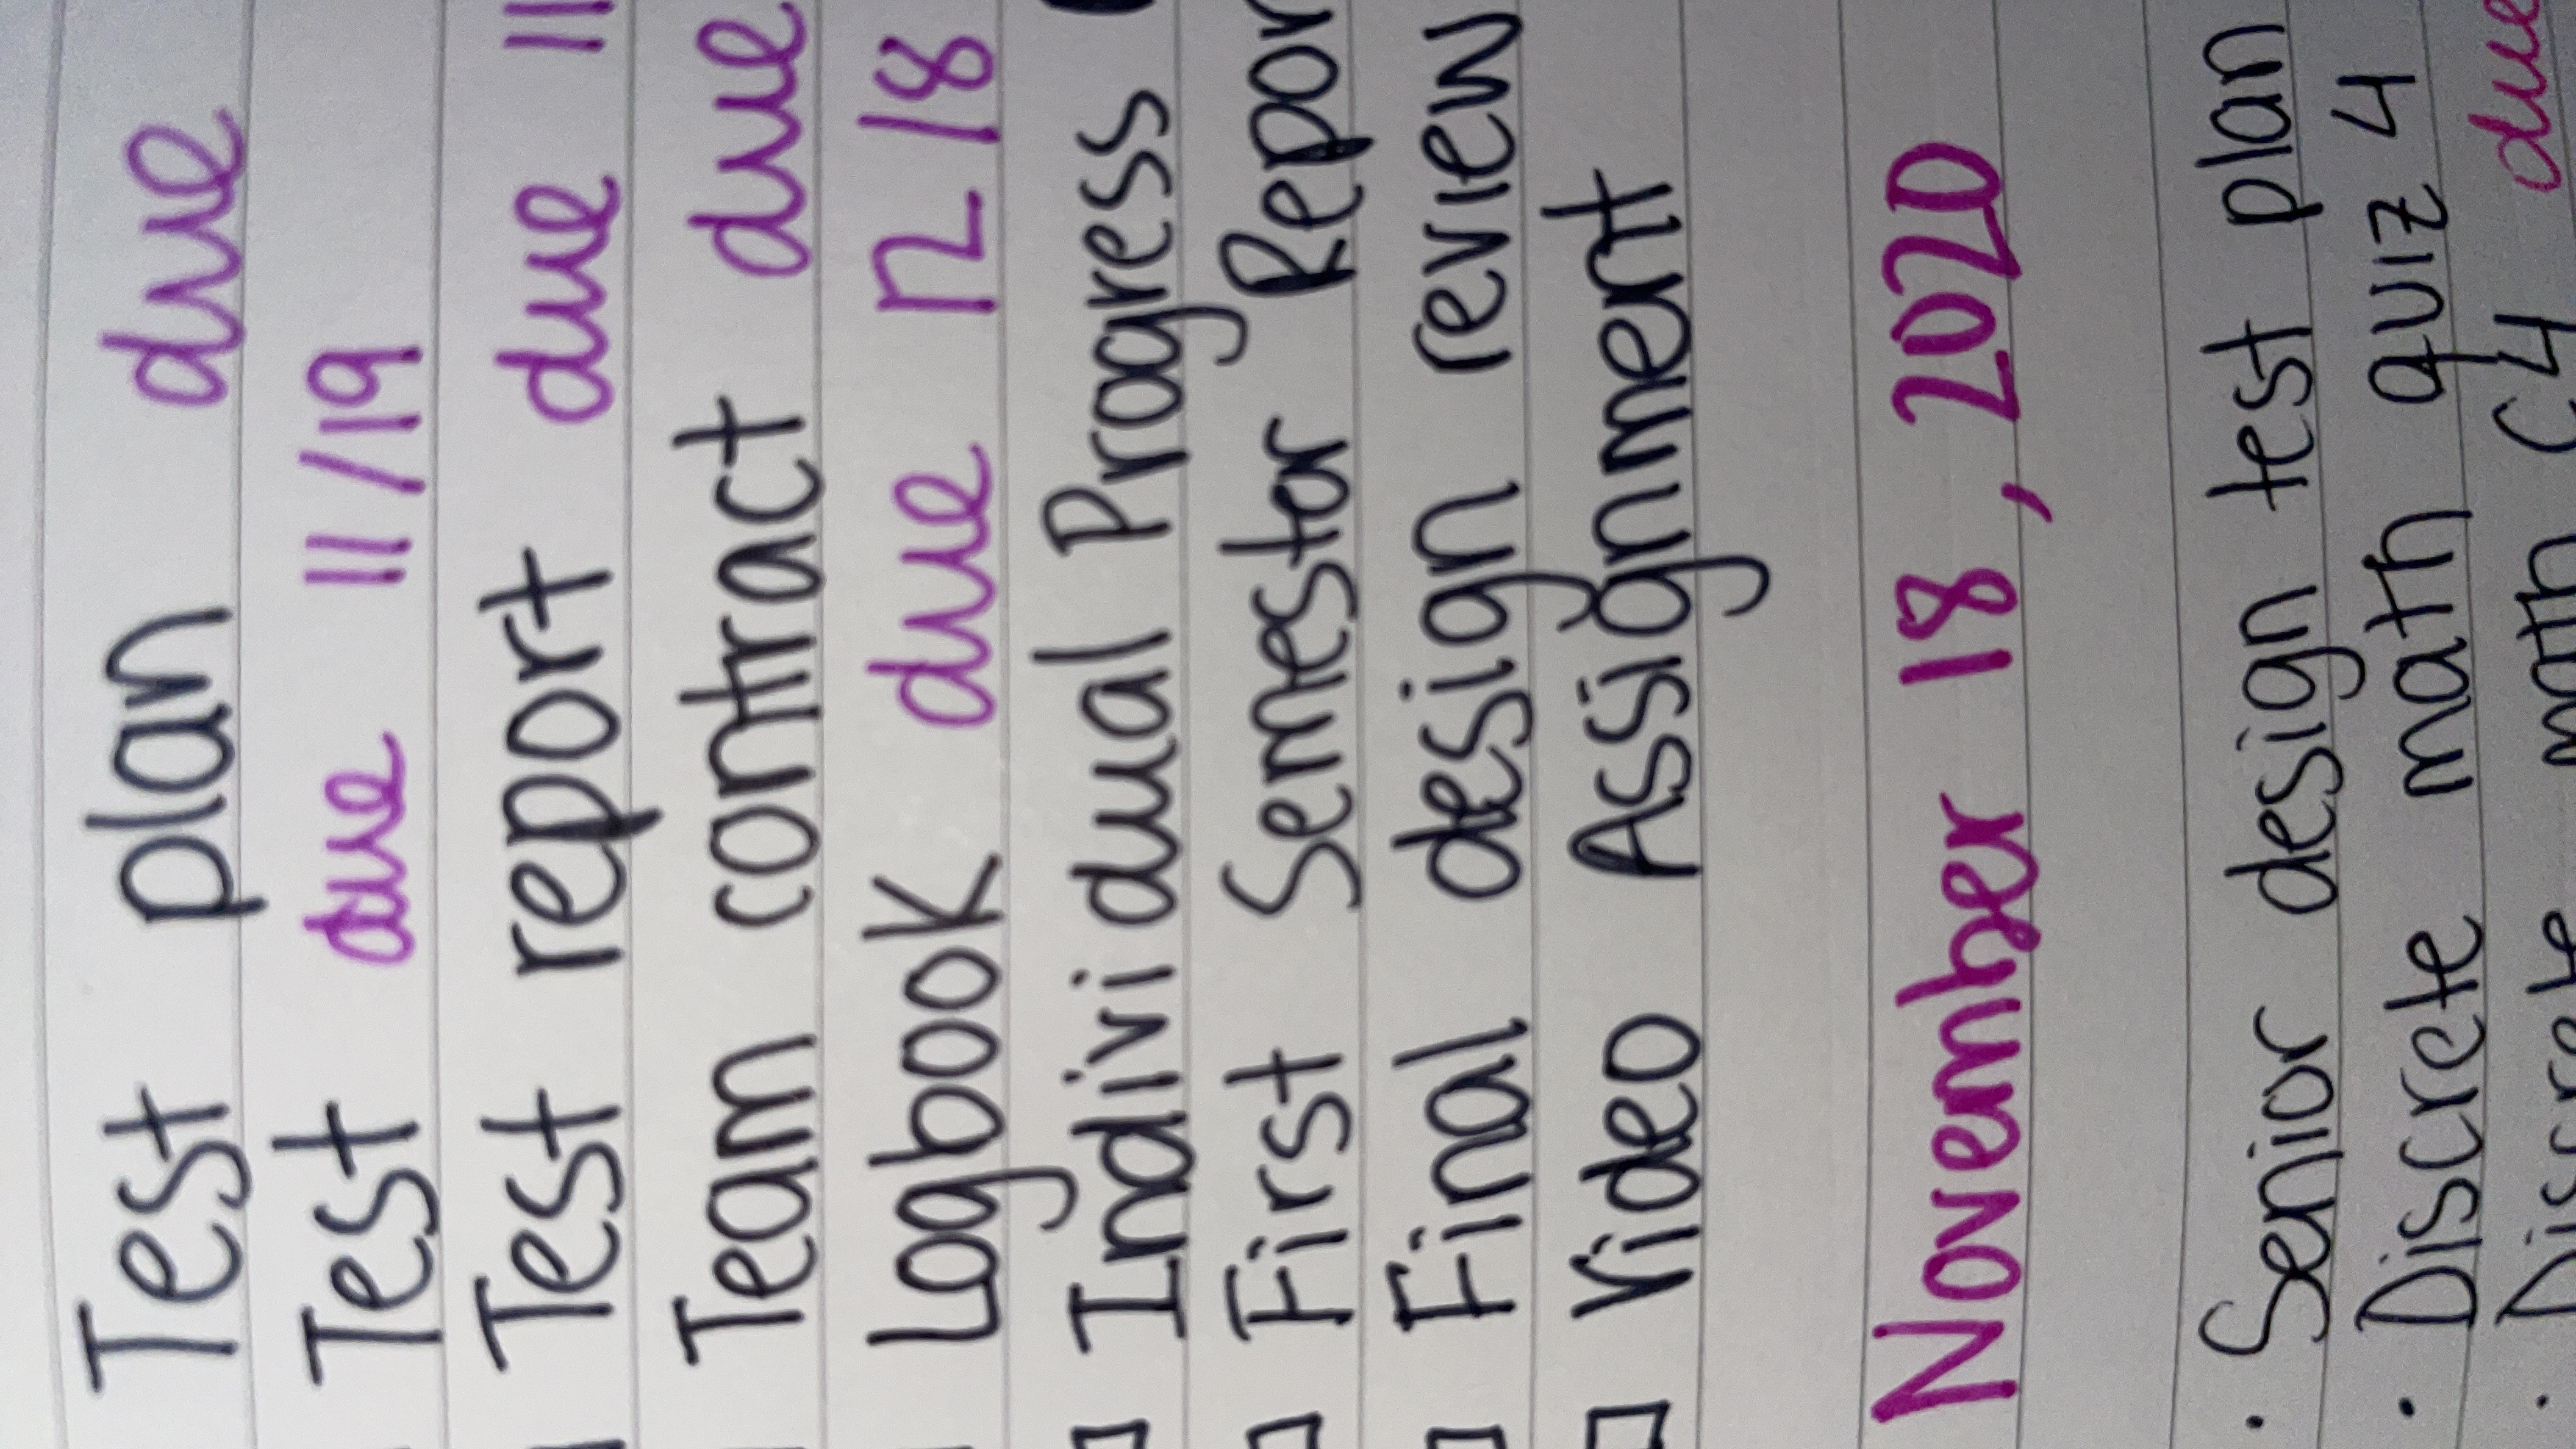 Test plan due
Test due 11/19
Test report due 11
Team contract due
Logbook due 12/8
Individual Progress
First Semester Repor
Final design review
Video Assignment
November 18, 2020
· Senior design test plan
· Discrete math quiz 4
· Discrete math C4 due